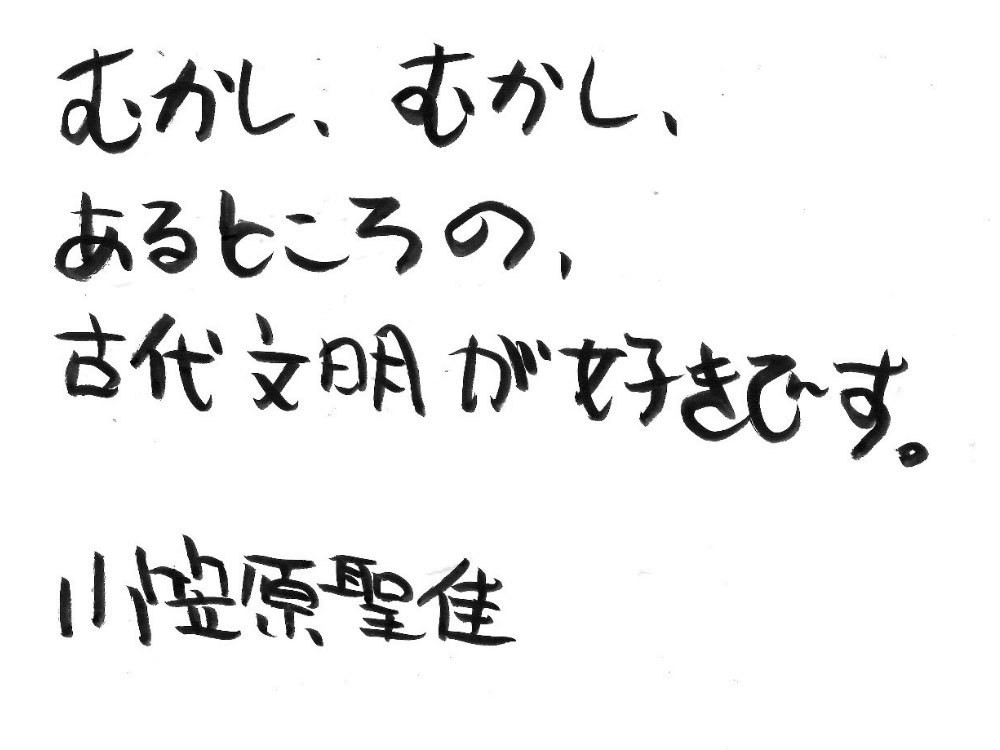 むかし、むかし、
あるところの、
古代文明が好きです。
小笠原聖佳